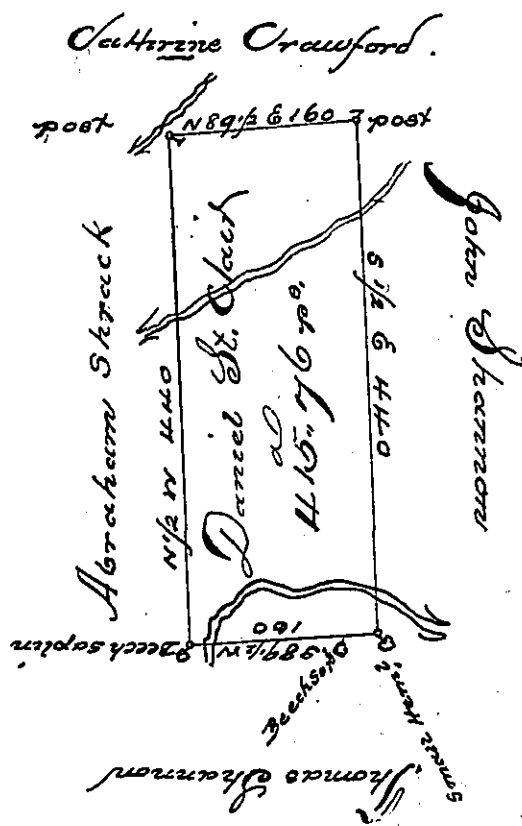 Catherine Crawford.
post
N 89 ½ E 160
post
Abraham Shrack
N ½ W 440
Daniel St. Clair
415 a 76 ps.
S ½ E 440
John Shannon
Beech saplin
S 89 ½ W
160
Beech Sapl
Thomas Shannon